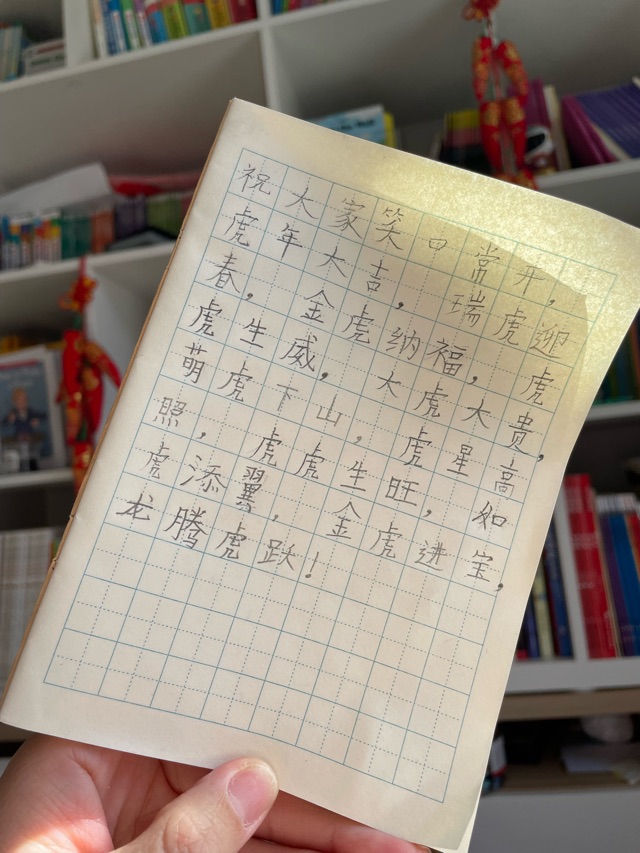 祝大家笑口常开，
虎年大吉，瑞虎迎
春，金虎纳福，虎
虎生威，大虎大贵，
萌虎下山，虎星高
照，虎虎生旺，如
虎添翼，金虎进宝，
龙腾虎跃！